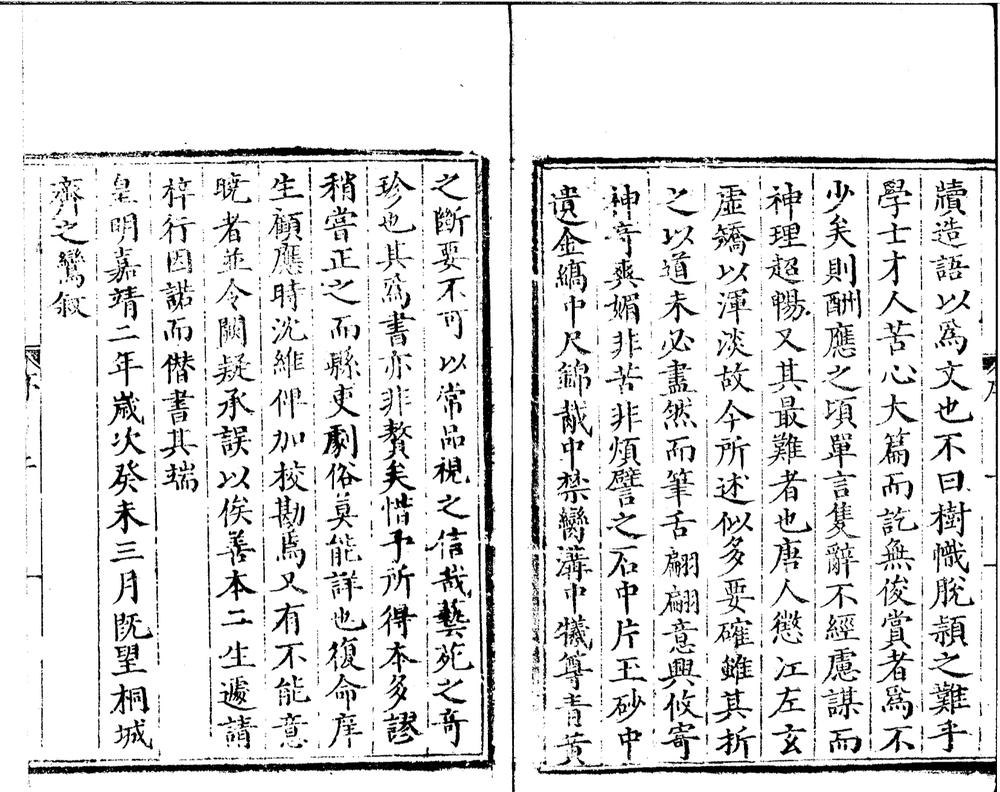 牘造語以爲文也不曰樹幟脫潁之難乎
學士才人苦心大篇而訖無俊賞者爲不
少矣則酬應之頃單言隻辭不經慮謀而
神理超暢又其最難者也唐人懲江左玄
虛矯以渾淡故今所述似多要確雖其折
之以道未必盡然而筆舌翩翩意興攸寄
神奇爽媚非苦非煩譬之石中片玉砂中
遺金縞中尺錦胾中禁臠溝中犧尊青黃
之斷要不可以常品視之信哉藝苑之奇
珍也其爲書亦非贅矣惜予所得本多謬
稍嘗正之而縣吏劇俗莫能詳也復命庠
生顧應時沈維伊加校勘焉又有不能意
曉者並令闕疑承誤以俟善本二生遽請
梓行因諾而僭書其端
皇明嘉靖二年歲次癸未三月既望桐城
齊之鸞叙